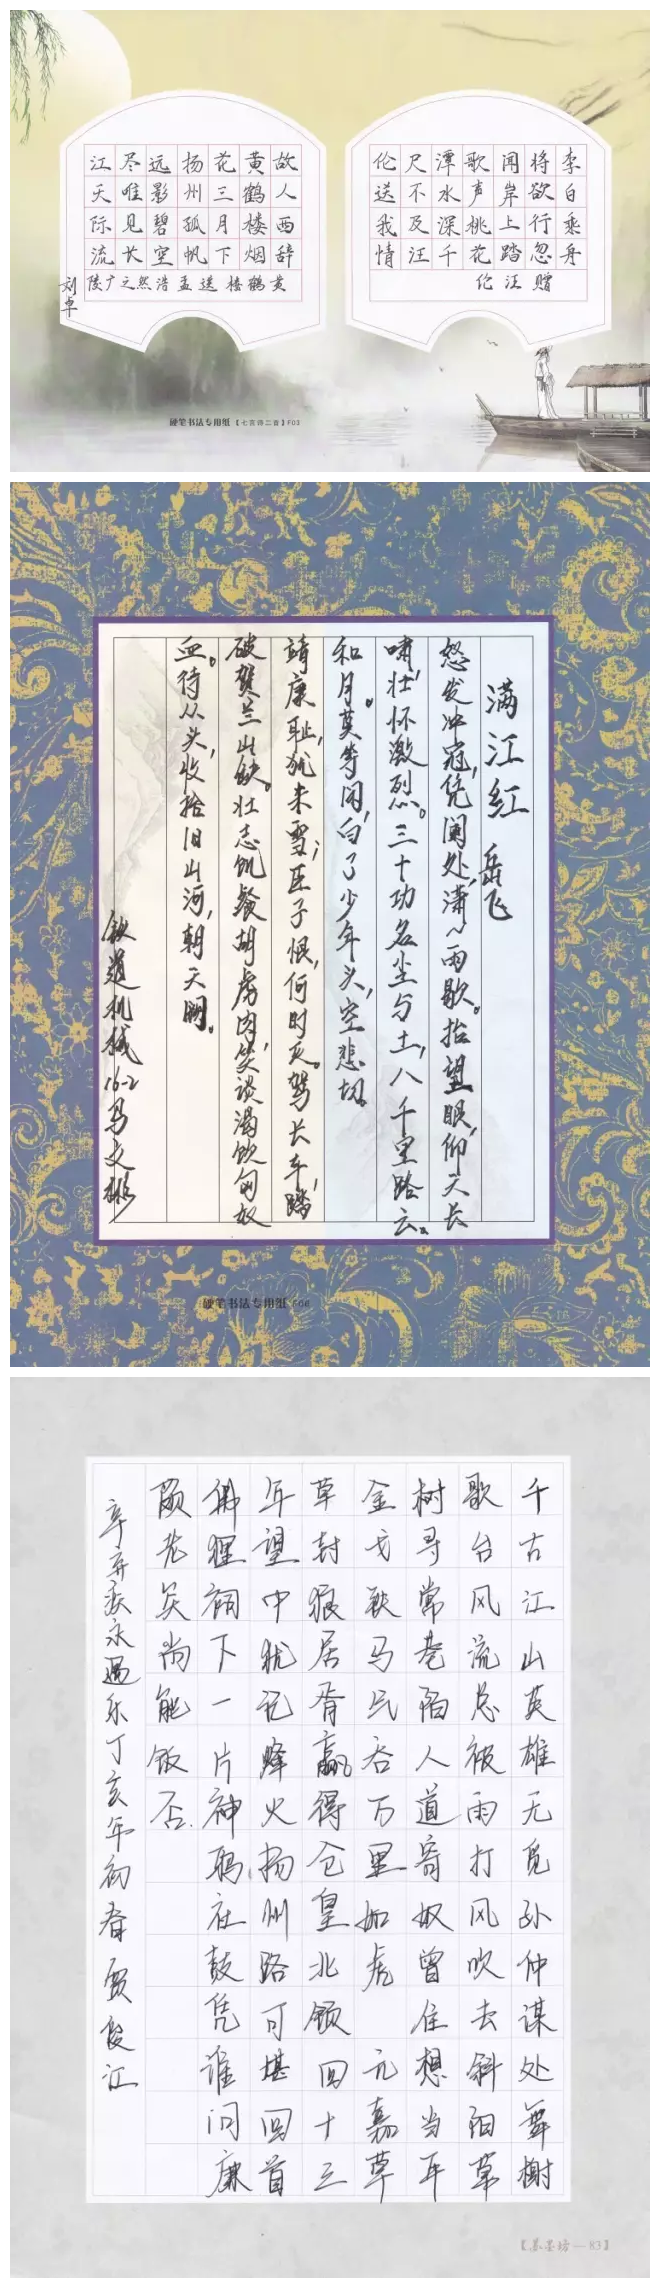 李白乘舟
将欲行忽
闻岸上踏
歌声桃花
潭水深千
尺不及汪
伦送我情
赠汪伦
故人西辞
黄鹤楼烟
花三月下
扬州孤帆
远影碧空
尽唯见长
江天际流
黄鹤楼送孟浩然之广陵
刘卓
硬笔书法专用纸【七言诗二首】F03
满江红 岳飞
怒发冲冠,凭阑处,潇~雨歇。抬望眼,仰天长
啸,壮怀激烈。三十功名尘与土,八千里路云
和月。莫等闲,白了少年头,空悲切。
靖康耻,犹未雪;臣子恨,何时灭。驾长车,踏
破贺兰山缺。壮志饥餐胡虏肉,笑谈渴饮匈奴
血。待从头,收拾旧山河,朝天阙。
铁道机械16-2马文彬
硬笔书法专用纸 F06
千古江山英雄无觅孙仲谋处舞榭
歌台风流总被雨打风吹去斜阳草
树寻常巷陌人道寄奴曾住想当年
金戈铁马气吞万里如虎 元嘉草
草封狼居胥赢得仓皇北顾回十三
年望中犹记烽火扬州路可堪回首
佛狸祠下一片神鸦社鼓凭谁问廉
颇老矣尚能饭否.
辛弃疾永遇乐丁亥年初春贾俊江
墨坊—83】